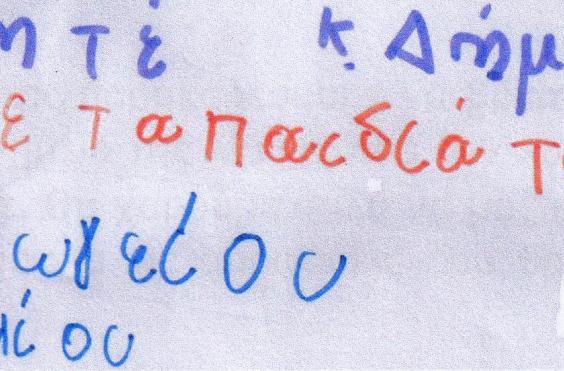 ητέ κ. Δήμ
ε τα παιδιά τ
ωγείου
ίου